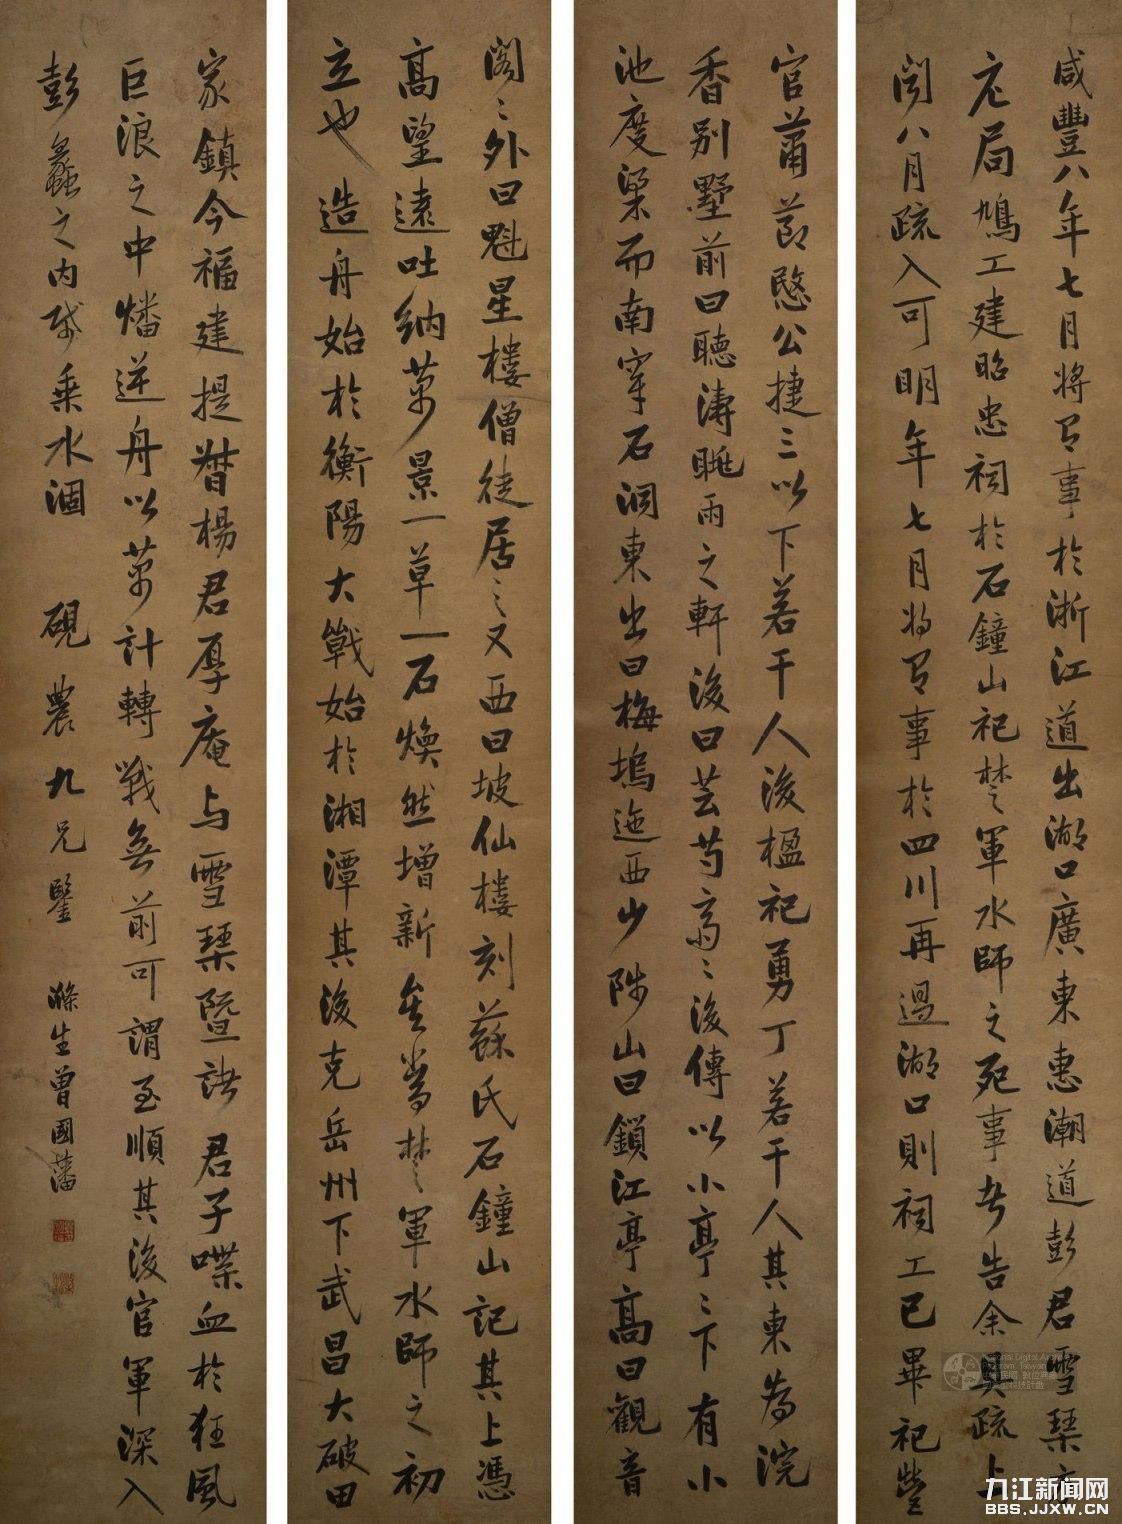 咸豐八年七月將有事於浙江道出湖口廣東惠潮道彭君雪琴方
於局鳩工建昭忠祠於石鐘山祀楚軍水師之死事者告余具疏上
聞八月疏入可明年七月將有事於四川再過湖口則祠工已畢祀營
官蕭節愍公捷三以下若干人後楹祀勇丁若干人其東為浣
香別墅前曰聽濤眺雨之軒後曰芸芍齋〻後傅以小亭〻下有小
池度梁而南穿石洞東出曰梅塢迤西少陟山曰鎖江亭高曰觀音
閣〻外曰魁星樓僧徒居之又西曰坡仙樓刻蘇氏石鐘山記其上憑
高望遠吐納萬景一草一石煥然增新矣當楚軍水師之初
立也造舟始於衡陽大戰始於湘潭其後克岳州下武昌大破田
家鎮今福建提督楊君厚庵与雪琴暨諸君子喋血於狂風
巨浪之中燔逆舟以萬計轉戰無前可謂至順其後官軍深入
彭蠡之内賊乘水涸 硯農九兄鑒 滌生曾國藩
九江新闻网
BBS.JJXW.CN